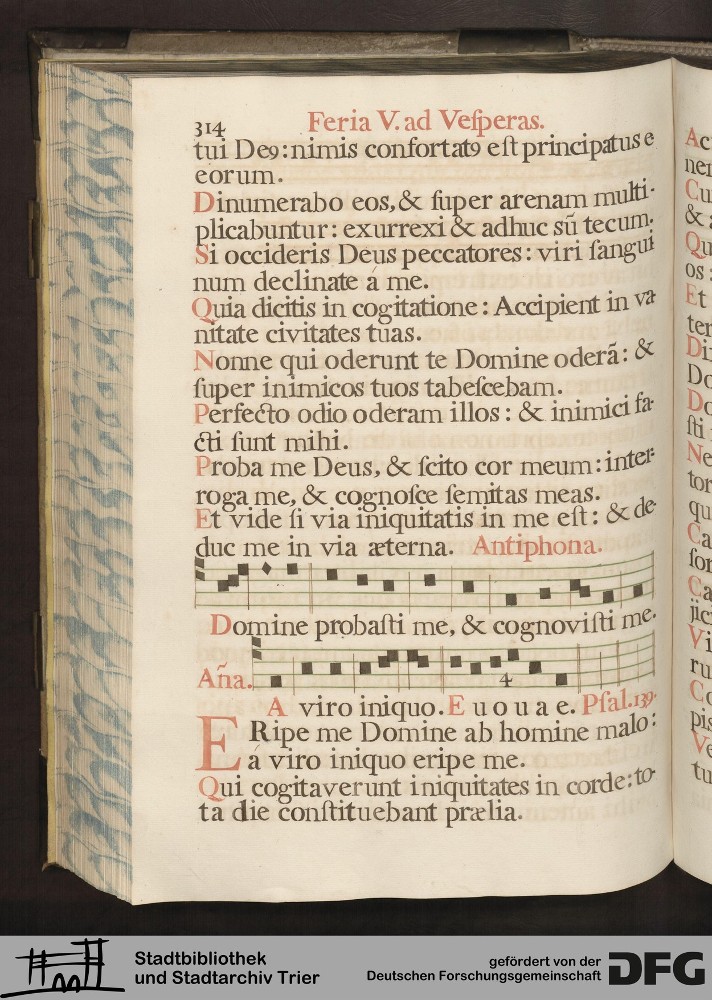 314 Feria V. ad Veſperas.
tui De9: nimis confortat9 eſt principatus e
eorum.
Dinumerabo eos, & ſuper arenam multi-
plicabuntur: exurrexi & adhuc sũ tecum.
Si occideris Deus peccatores: viri ſangui
num declinate á me.
Quia dicitis in cogitatione: Accipient in va-
nitate civitates tuas.
Nonne qui oderunt te Domine oderã: &
ſuper inimicos tuos tabeſcebam.
Perfecto odio oderam illos: & inimici fa-
cti ſunt mihi.
Proba me Deus, & ſcito cor meum: inter-
roga me, & cognoſce ſemitas meas.
Et vide ſi via iniquitatis in me eſt: & de-
duc me in via æterna. Antiphona.
Domine probaſti me, & cognoviſti me.
Aña.
4
A viro iniquo. E u o u a e. Pſal. 139.
ERipe me Domine ab homine malo:
á viro iniquo eripe me.
Qui cogitaverunt iniquitates in corde: to-
ta die conſtituebant prælia.
Stadtbibliothek
und Stadtarchiv Trier
gefördert von der
Deutschen Forschungsgemeinschaft
DFG